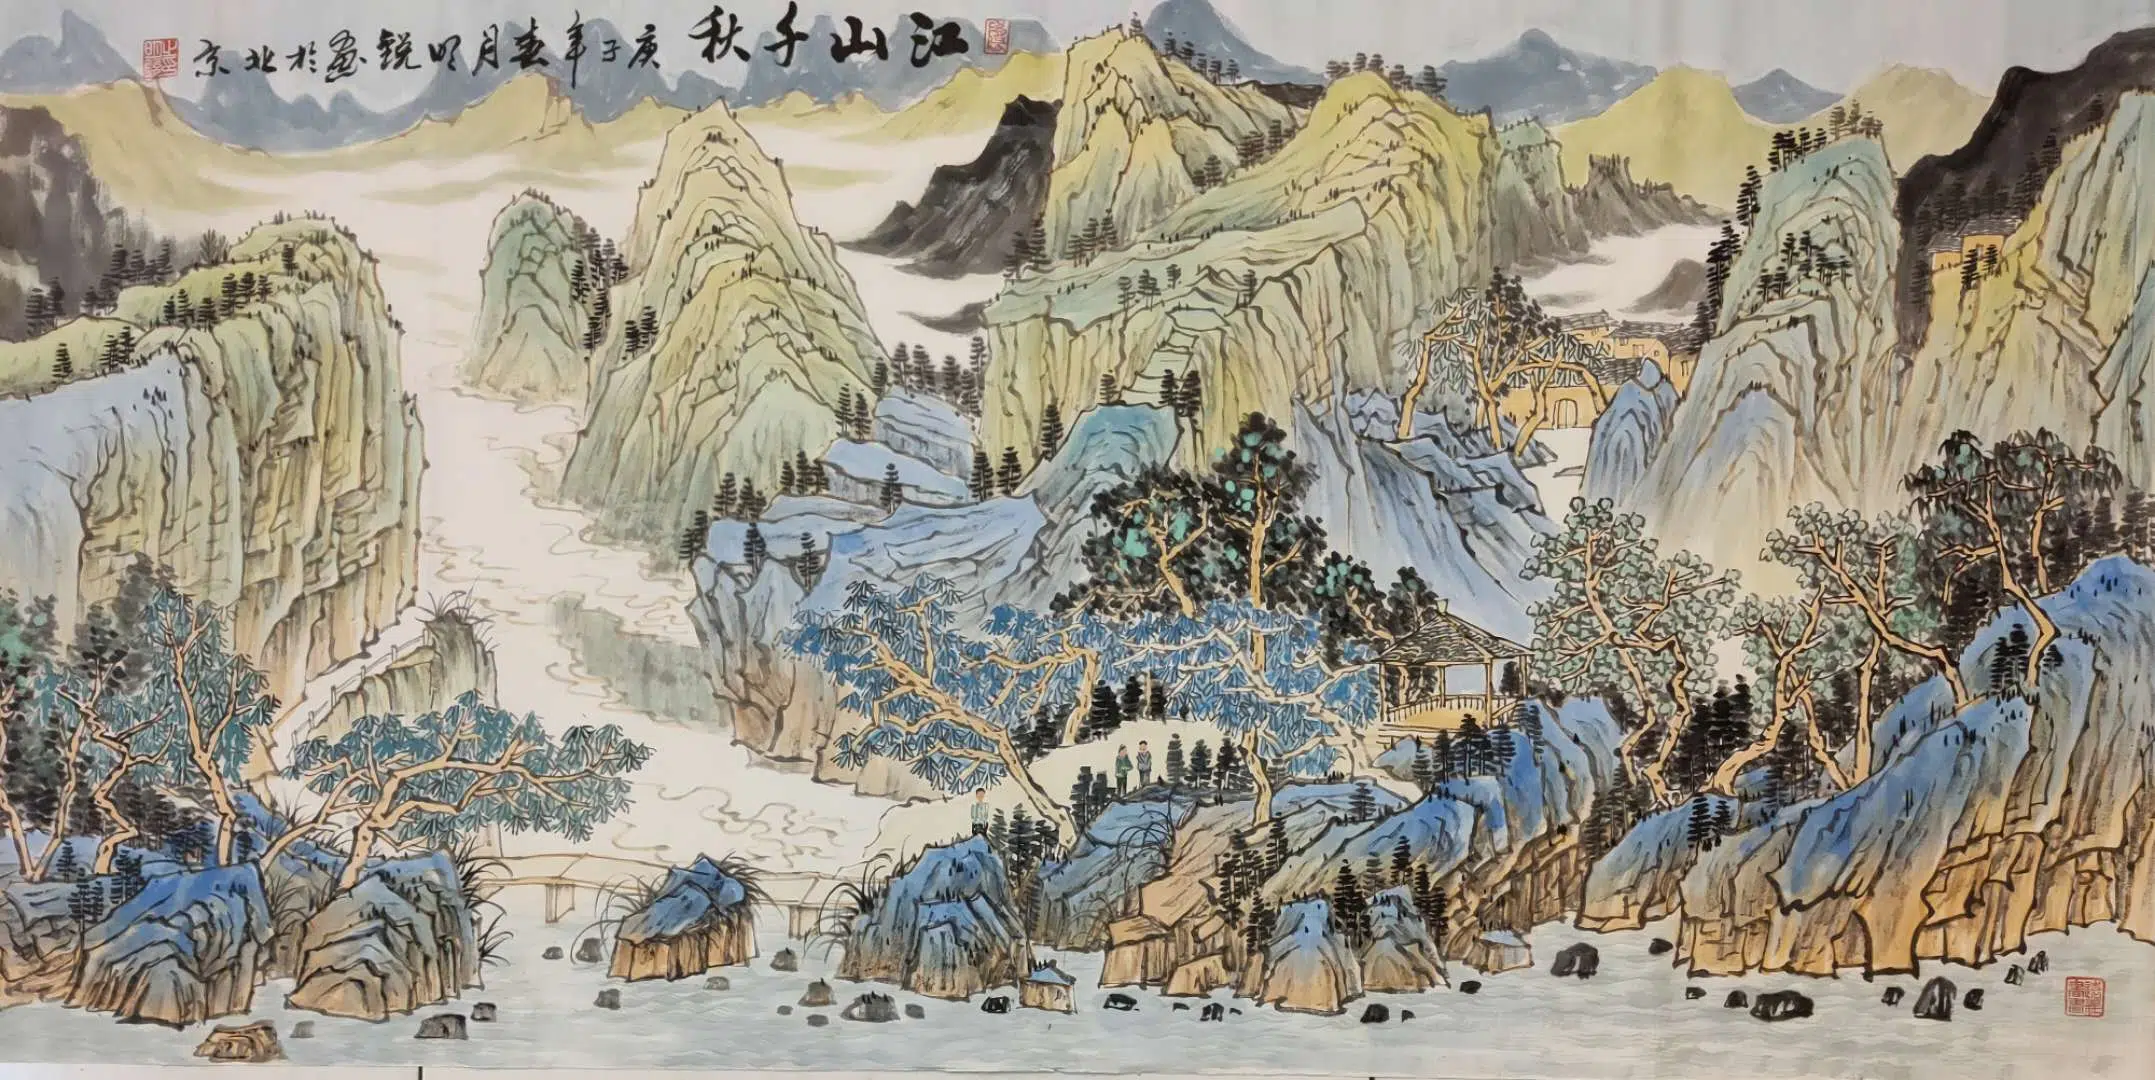 江山千秋
庚子年春月明锐画于北京